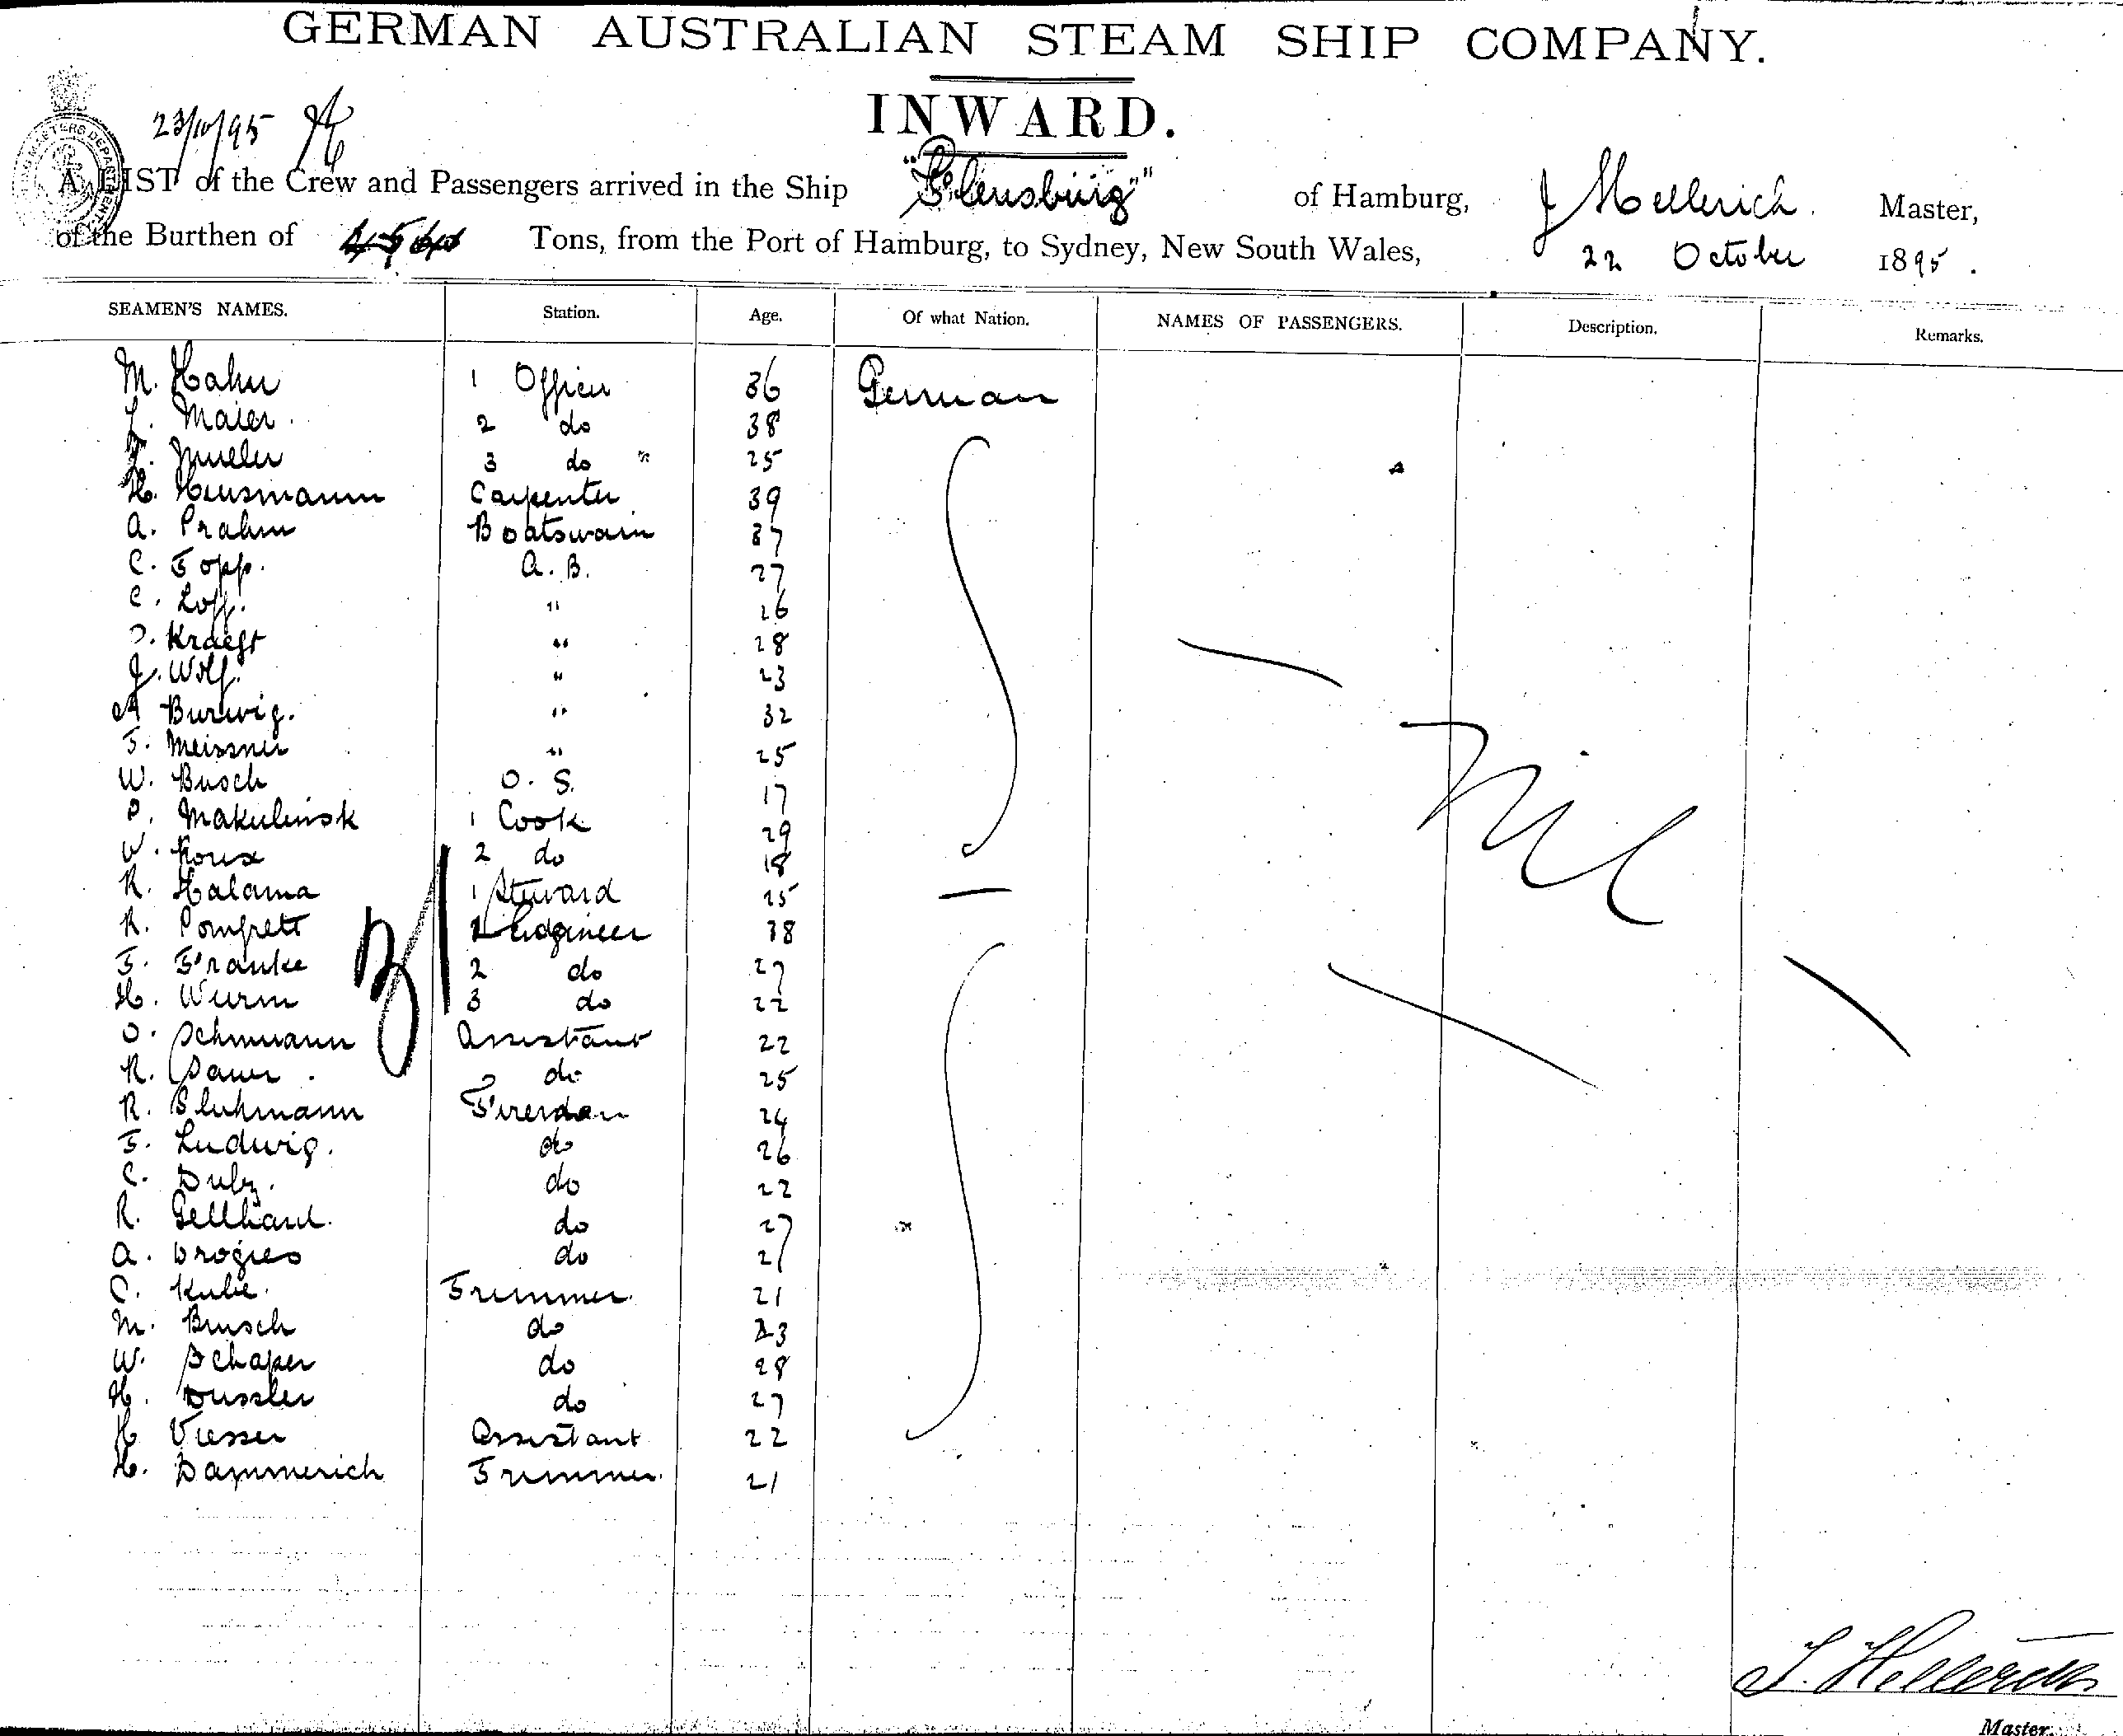 GERMAN AUSTRALIAN STEAM SHIP COMPANY.
INWARD.
23/10/95
A LIST of the Crew and Passengers arrived in the Ship "Flensburg" of Hamburg, J Hellerich. Master,
of the Burthen of Tons, from the Port of Hamburg, to Sydney, New South Wales, 22 October 1895.
SEAMEN'S NAMES. Station. Age. Of what Nation. NAMES OF PASSENGERS. Description. Remarks.
M. Hahn 1 Officer 36 German
Maier 2 do 38
Mueller 3 do " 25
H. Heusmann Carpenter 39
A. Prahm Boatswain 37
C. Topp. A. B. 27
C. Loff. " 26
Kraeft " 28
J. Wolf. " 23
A Burwig. " 32
F. Meissner " 25
W. Busch O. S. 17
P. Makulinsk 1 Cook 29
W. Roux 2 do 18
Nil
R. Halama 1 Steward 25
R. Pomfrett 1 Engineer 38
F. Franke 2 do 27
H. Wurm 3 do 22
O. Schumann Assistant 22
R. Sauer. do 25
R. Bluhmann Fireman 24
F. Ludwig. do 26
C. Duby. do 22
R. Gellhard. do 27
A. Drogies do 21
C. Kube. Trimmer. 21
M. Busch do 23
W. Schaper do 28
H. Dussler do 27
H Viesser Assistant 22
H. Dammerich Trimmer. 21
J. Hellerich
Master.